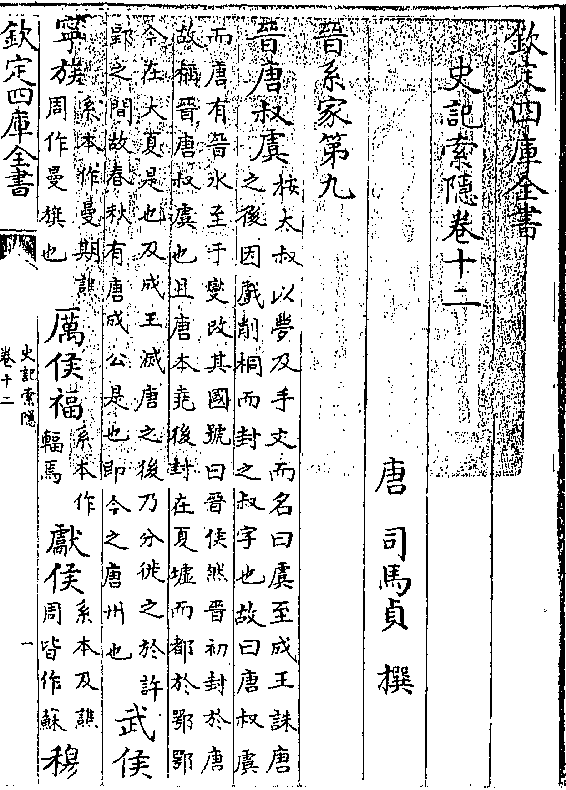 欽定四庫全書
史記索隱卷十二
唐 司馬貞 撰
晉系家第九
晉唐叔虞
按大叔以夢及手文而名曰虞至成王誅唐
之後因戲削桐而封之叔字也故曰唐叔虞
而唐有晉水至于變改其國號曰晉侯然晉初封於唐
故稱晉唐叔虞也且唐本堯後封在夏墟而都於鄂鄂
今在大夏是也及成王滅唐之後乃分徙之於許
郢之間故春秋有唐成公是也即今之唐州也
武侯
寧族
系本作曼期譙
周作曼旗也
厲侯福
系本作
輻焉
獻侯
系本及譙
周皆作蘇
穆
欽定四庫全書
史記索隱
卷十二
一